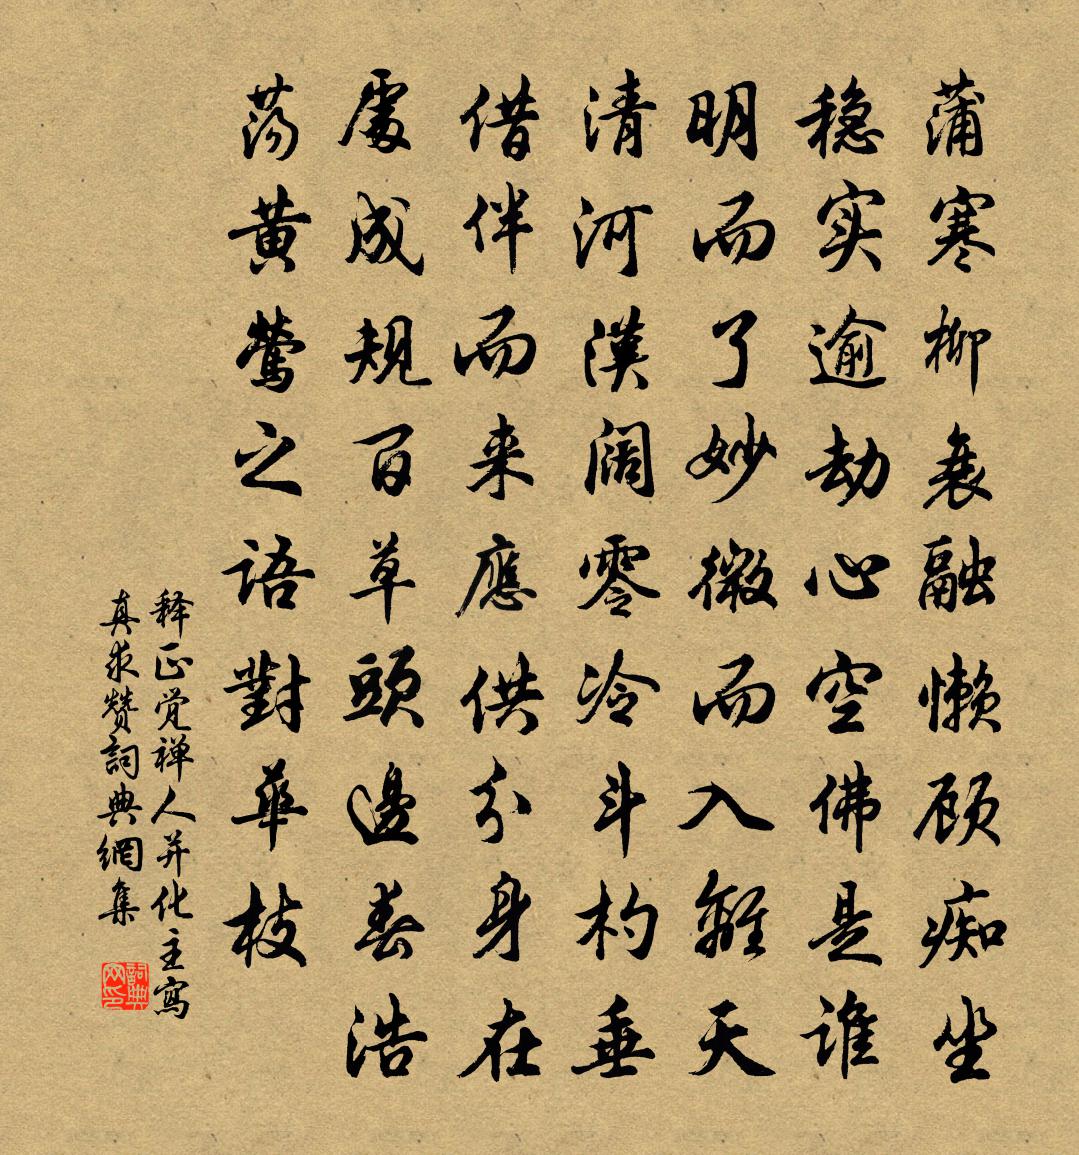 蒲寒柳衰融懒顾痴坐
稳实逾劫心空佛是谁
明而了妙微而入離天
清河漢阔零冷斗杓垂
借伴而来應供分身在
處成規百草頭邊春浩
荡黄鶯之语對華枝
释正觉禅人并化主寫
真求赞詞典網集
詞典
网印